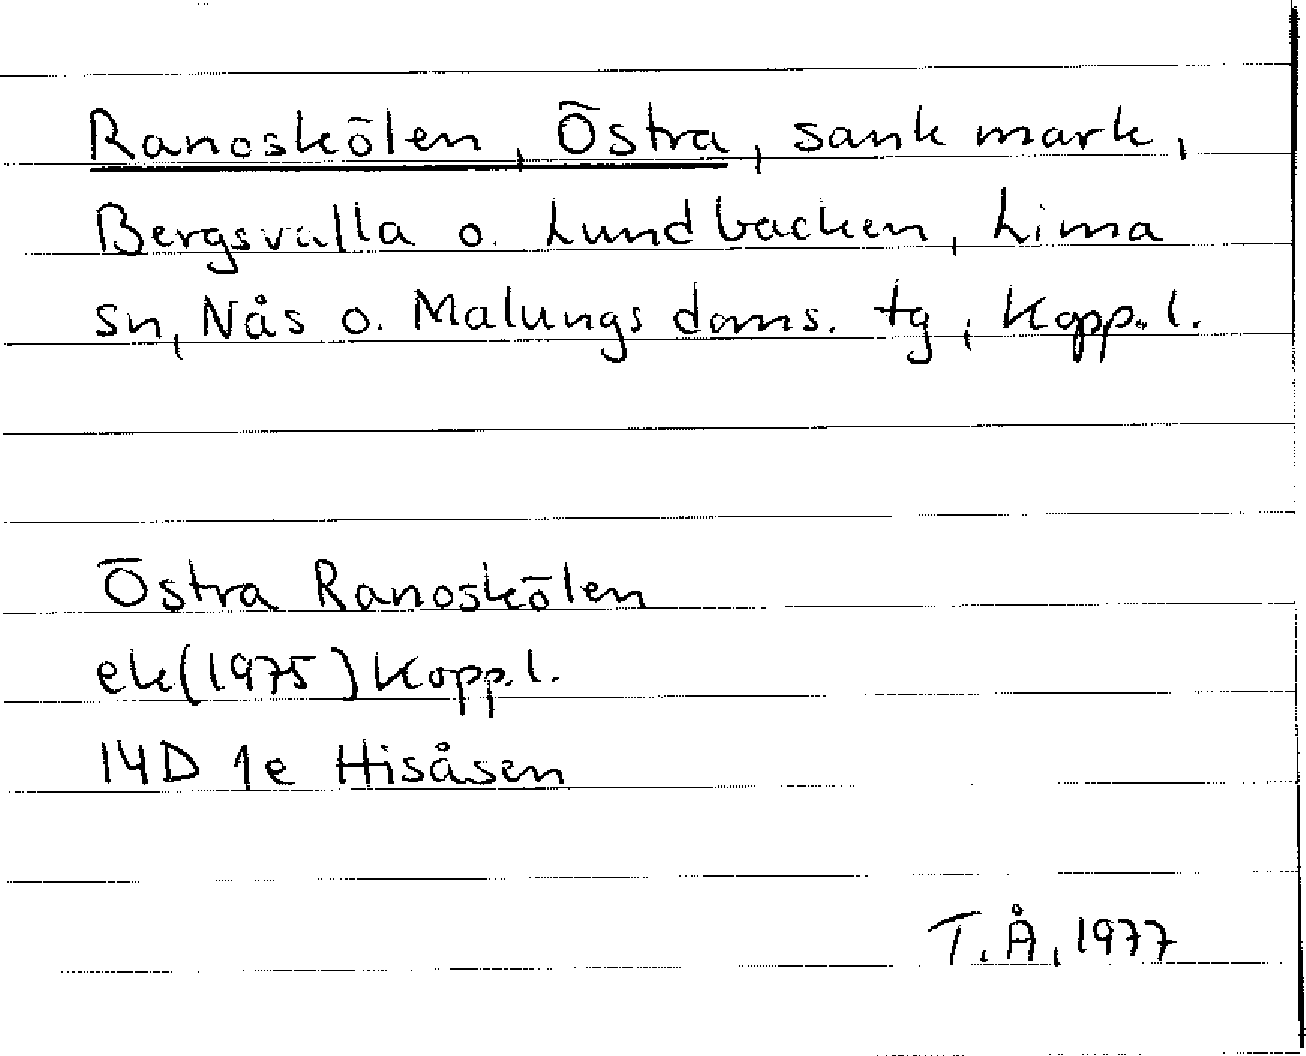 Ranoskölen, Östra, sank mark,
Bergsvalla o. Lundbacken, Lima
sn, Nås o. Malungs doms. tg, Kopp. l.
Östra Ranoskölen
ek(1975) Kopp. l.
14D 1e Hisåsen
T. Å, 1977